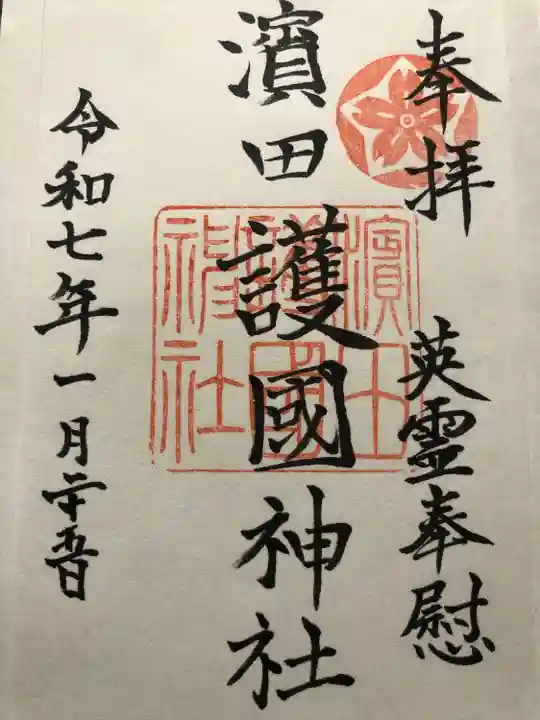 奉拝　英霊奉慰
濱田護國神社
令和七年一月二十五日
濱田
護國
神社